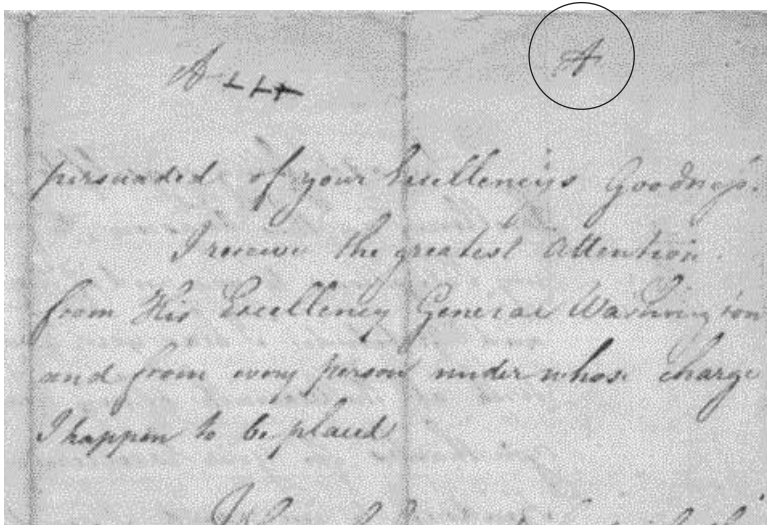 A A
persuaded of your Excellency's Goodness.
I receive the greatest Attention
from His Excellency General Washington
and from every person under whose charge
I happen to be placed